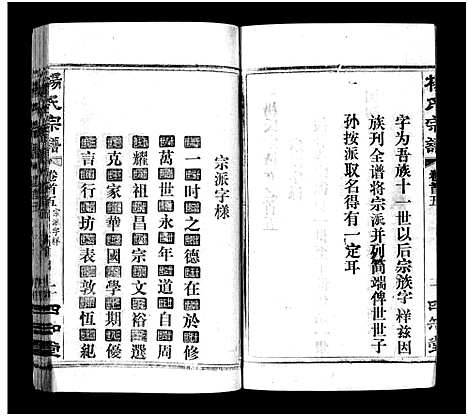 楊氏宗譜
卷首五
字为吾族十一世以后宗族字样兹因
族刊全谱将宗派并列简端俾世世子
孙按派取名得有一定耳
宗派字樣
一時之德在於修
萬世永年道自周
耀祖昌宗文裕選
克家華國學期優
言行坊表敦恆範
楊氏宗譜
卷首五
宗派字样
一
四知堂